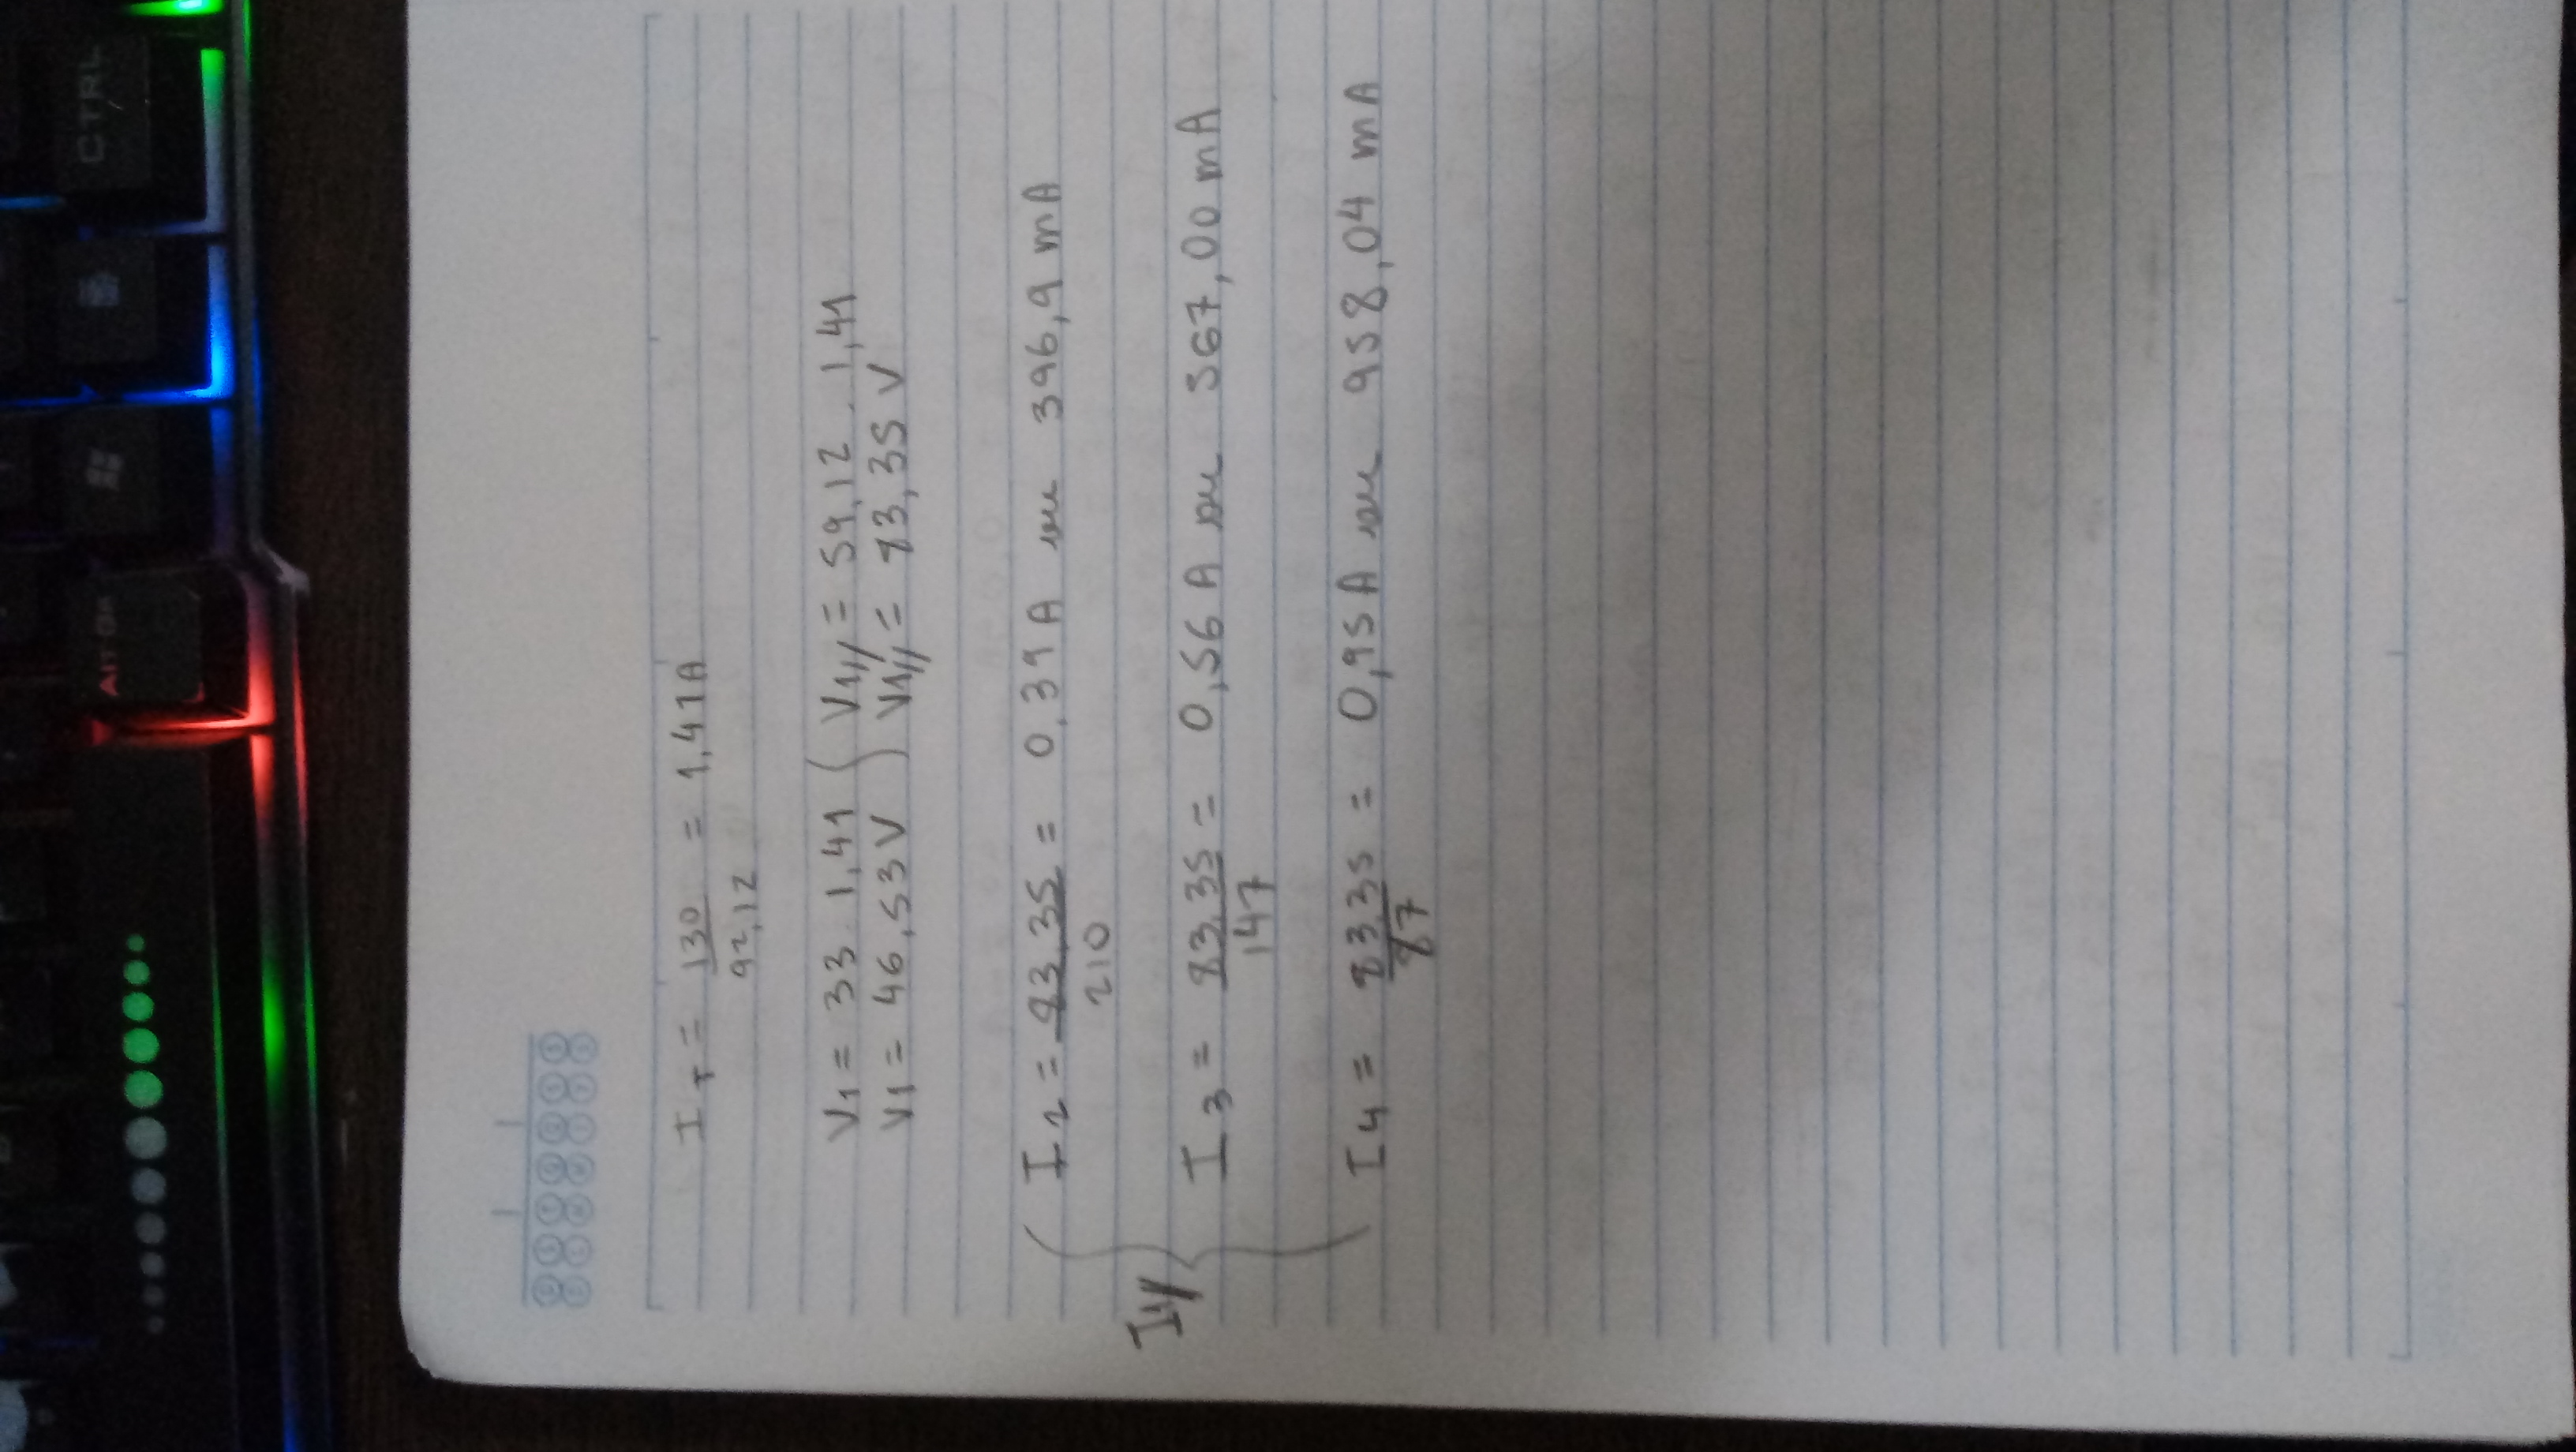 Alt Gr
CTRL
I T = 130 / 92,12 = 1,41A
V1 = 33 . 1,41 V1// = 59,12 . 1,41
V1 = 46,53V V1// = 83,35 V
I2 = 83,35 / 210 = 0,39 A ou 396,9 mA
I1//
I3 = 83,35 / 147 = 0,56 A ou 567,00 mA
I4 = 83,35 / 87 = 0,95A ou 958,04 mA